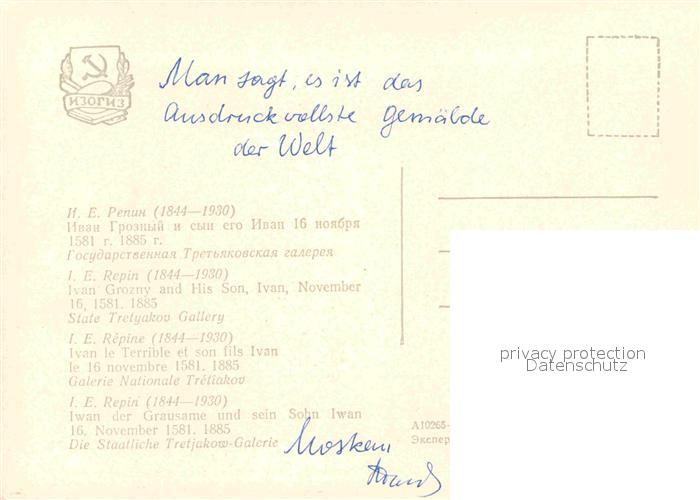 ИЗОГИЗ
Man sagt, es ist das
Ausdruckvollste Gemälde
der Welt
И. Е. Репин (1844—1930)
Иван Грозный и сын его Иван 16 ноября
1581 г. 1885 г.
Государственная Третьяковская галерея
I. E. Repin (1844—1930)
Ivan Grozny and His Son, Ivan, November
16, 1581. 1885
State Tretyakov Gallery
I. E. Répine (1844—1930)
Ivan le Terrible et son fils Ivan
le 16 novembre 1581. 1885
Galerie Nationale Trétiakov
I. E. Repin (1844—1930)
Iwan der Grausame und sein Sohn Iwan
16. November 1581. 1885
Die Staatliche Tretjakow-Galerie
Moskau
privacy protection
Datenschutz
А10265-
Экспер